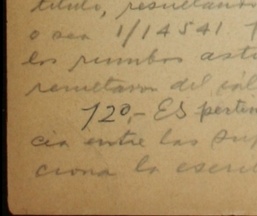 título, resultando
o sea 1/14541
los rumbos ast
resultaron del cál
12º,- ES pertin
cia entre las sup
ciona la escri